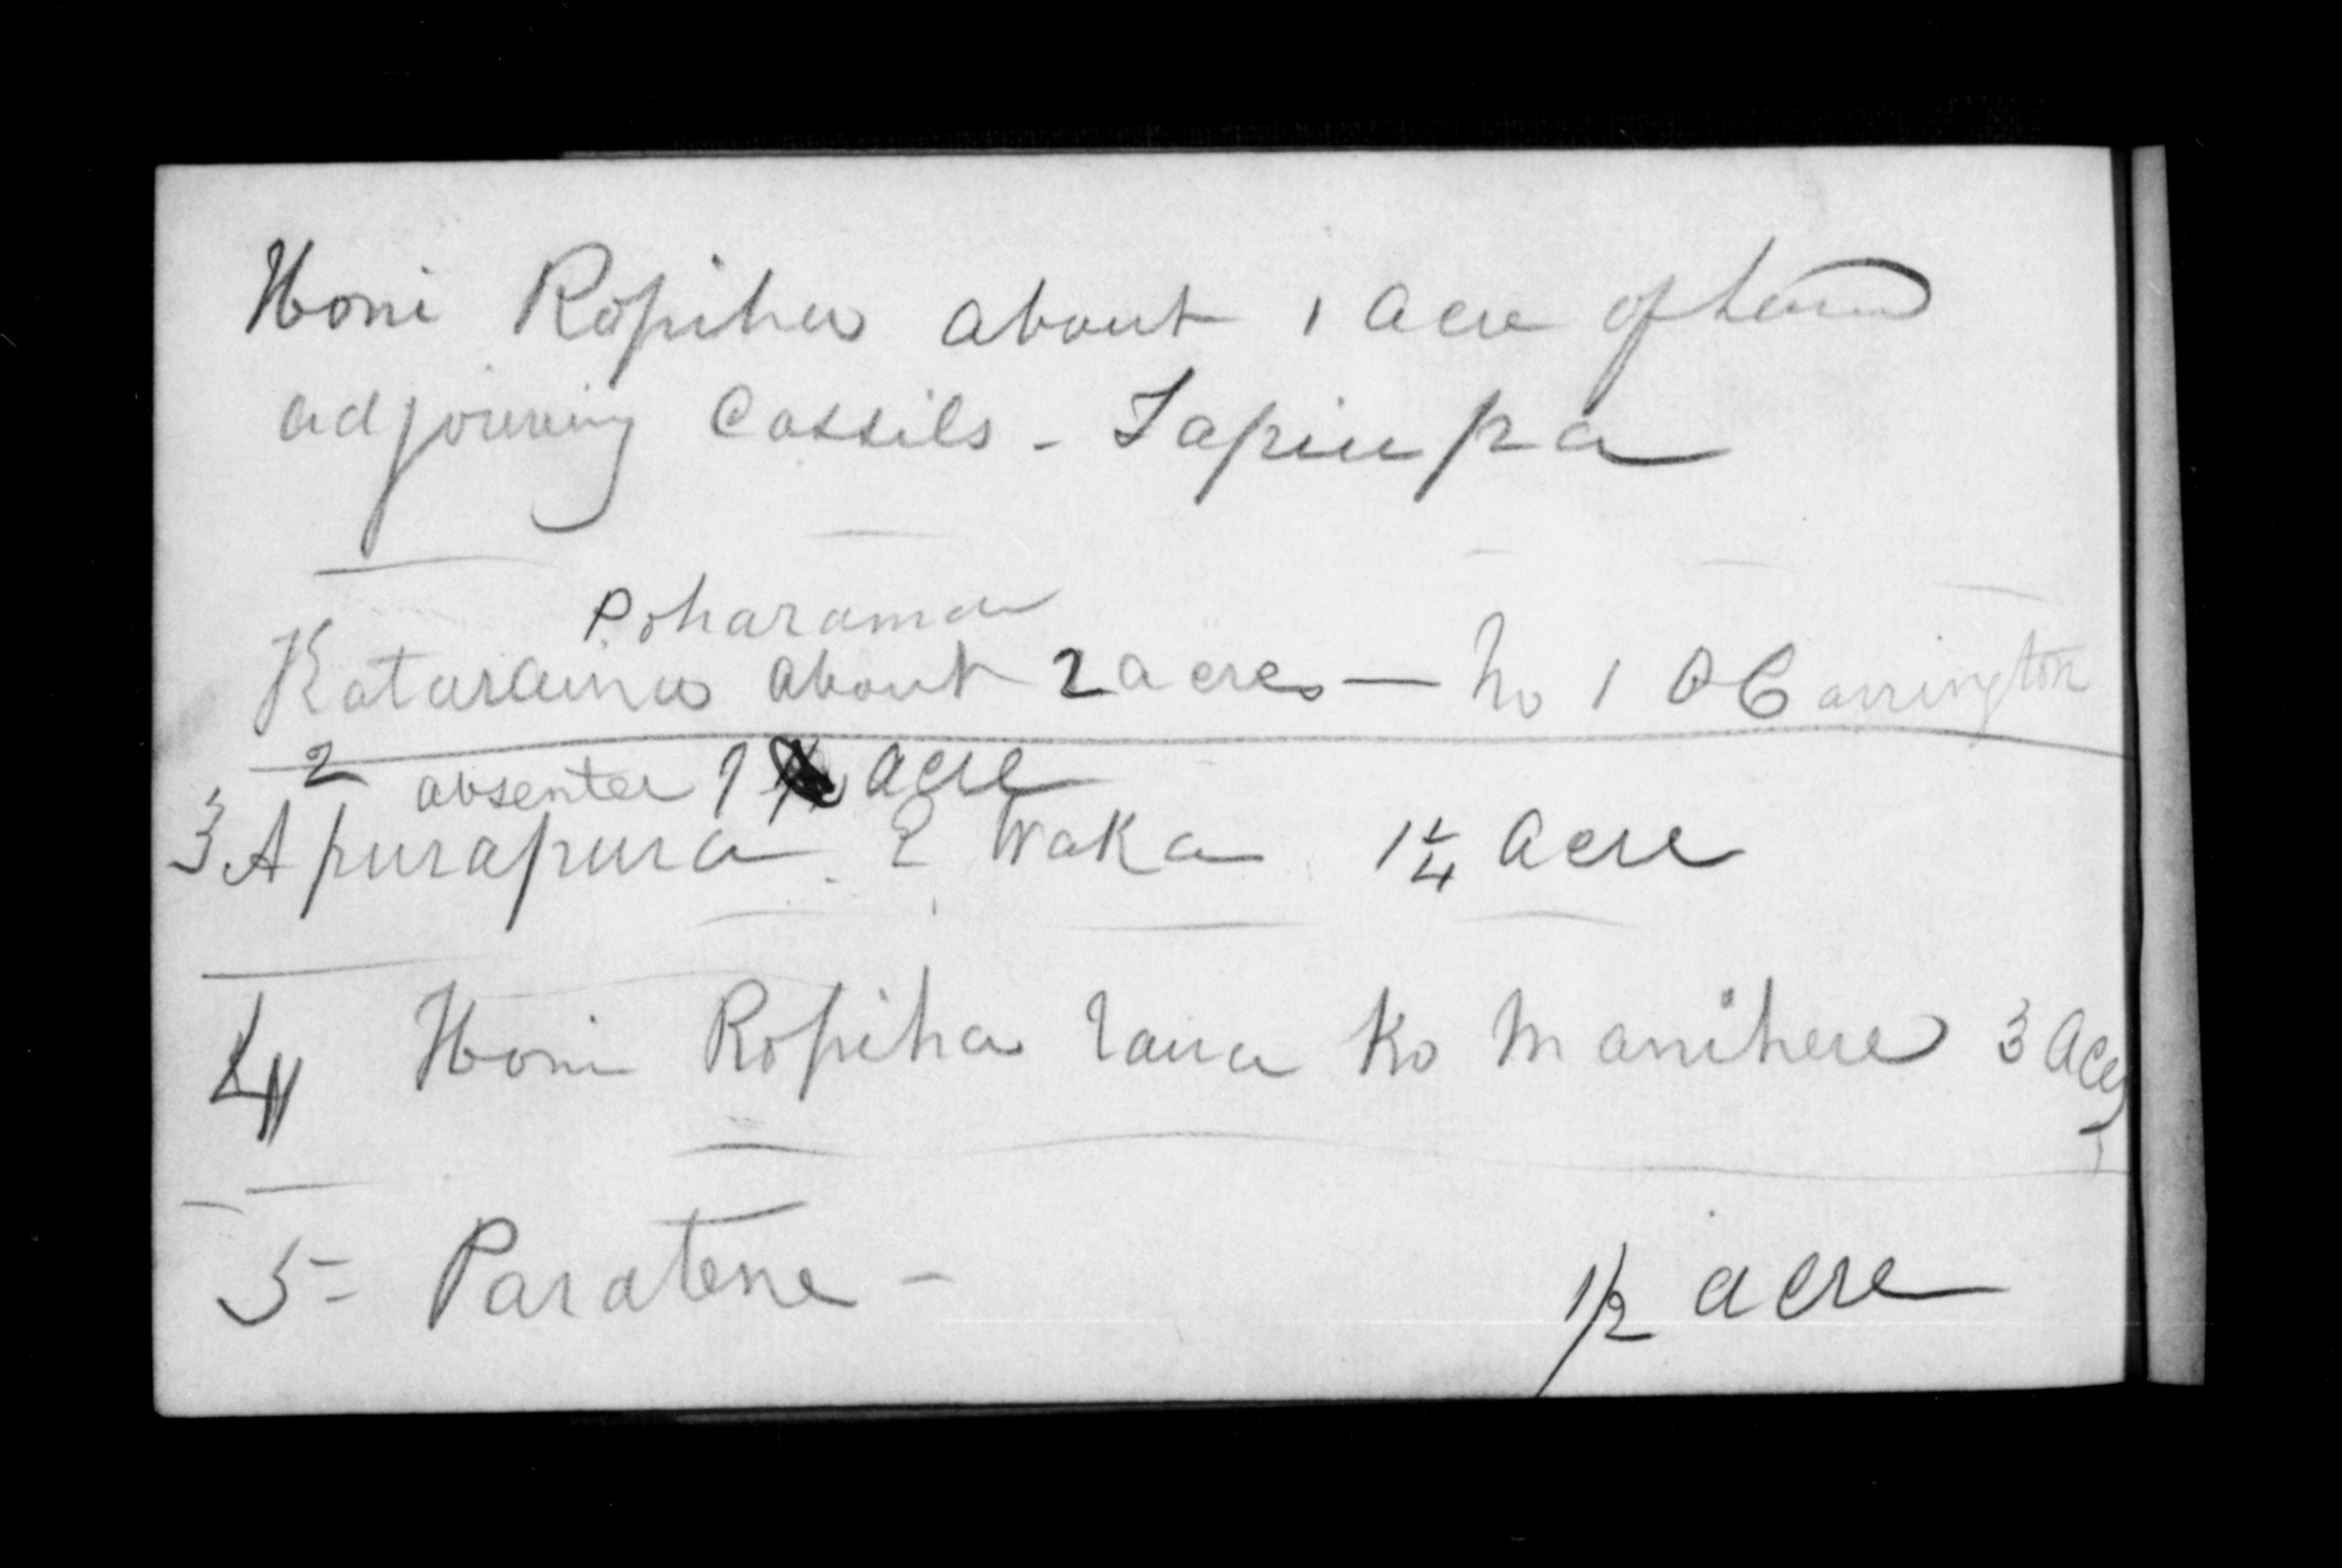 Honi Ropiha about 1 acre of land
adjoining Cassils - Tapiupa
Poharama
Kataraina about 2 acres — No 1 O Carrington
2 absenter 1 acre
3 Apurapura E Waka 1 1/4 acre
4 Honi Ropiha raua Ko Manihere 3 Acr
5 - Paratene - 1/2 acre